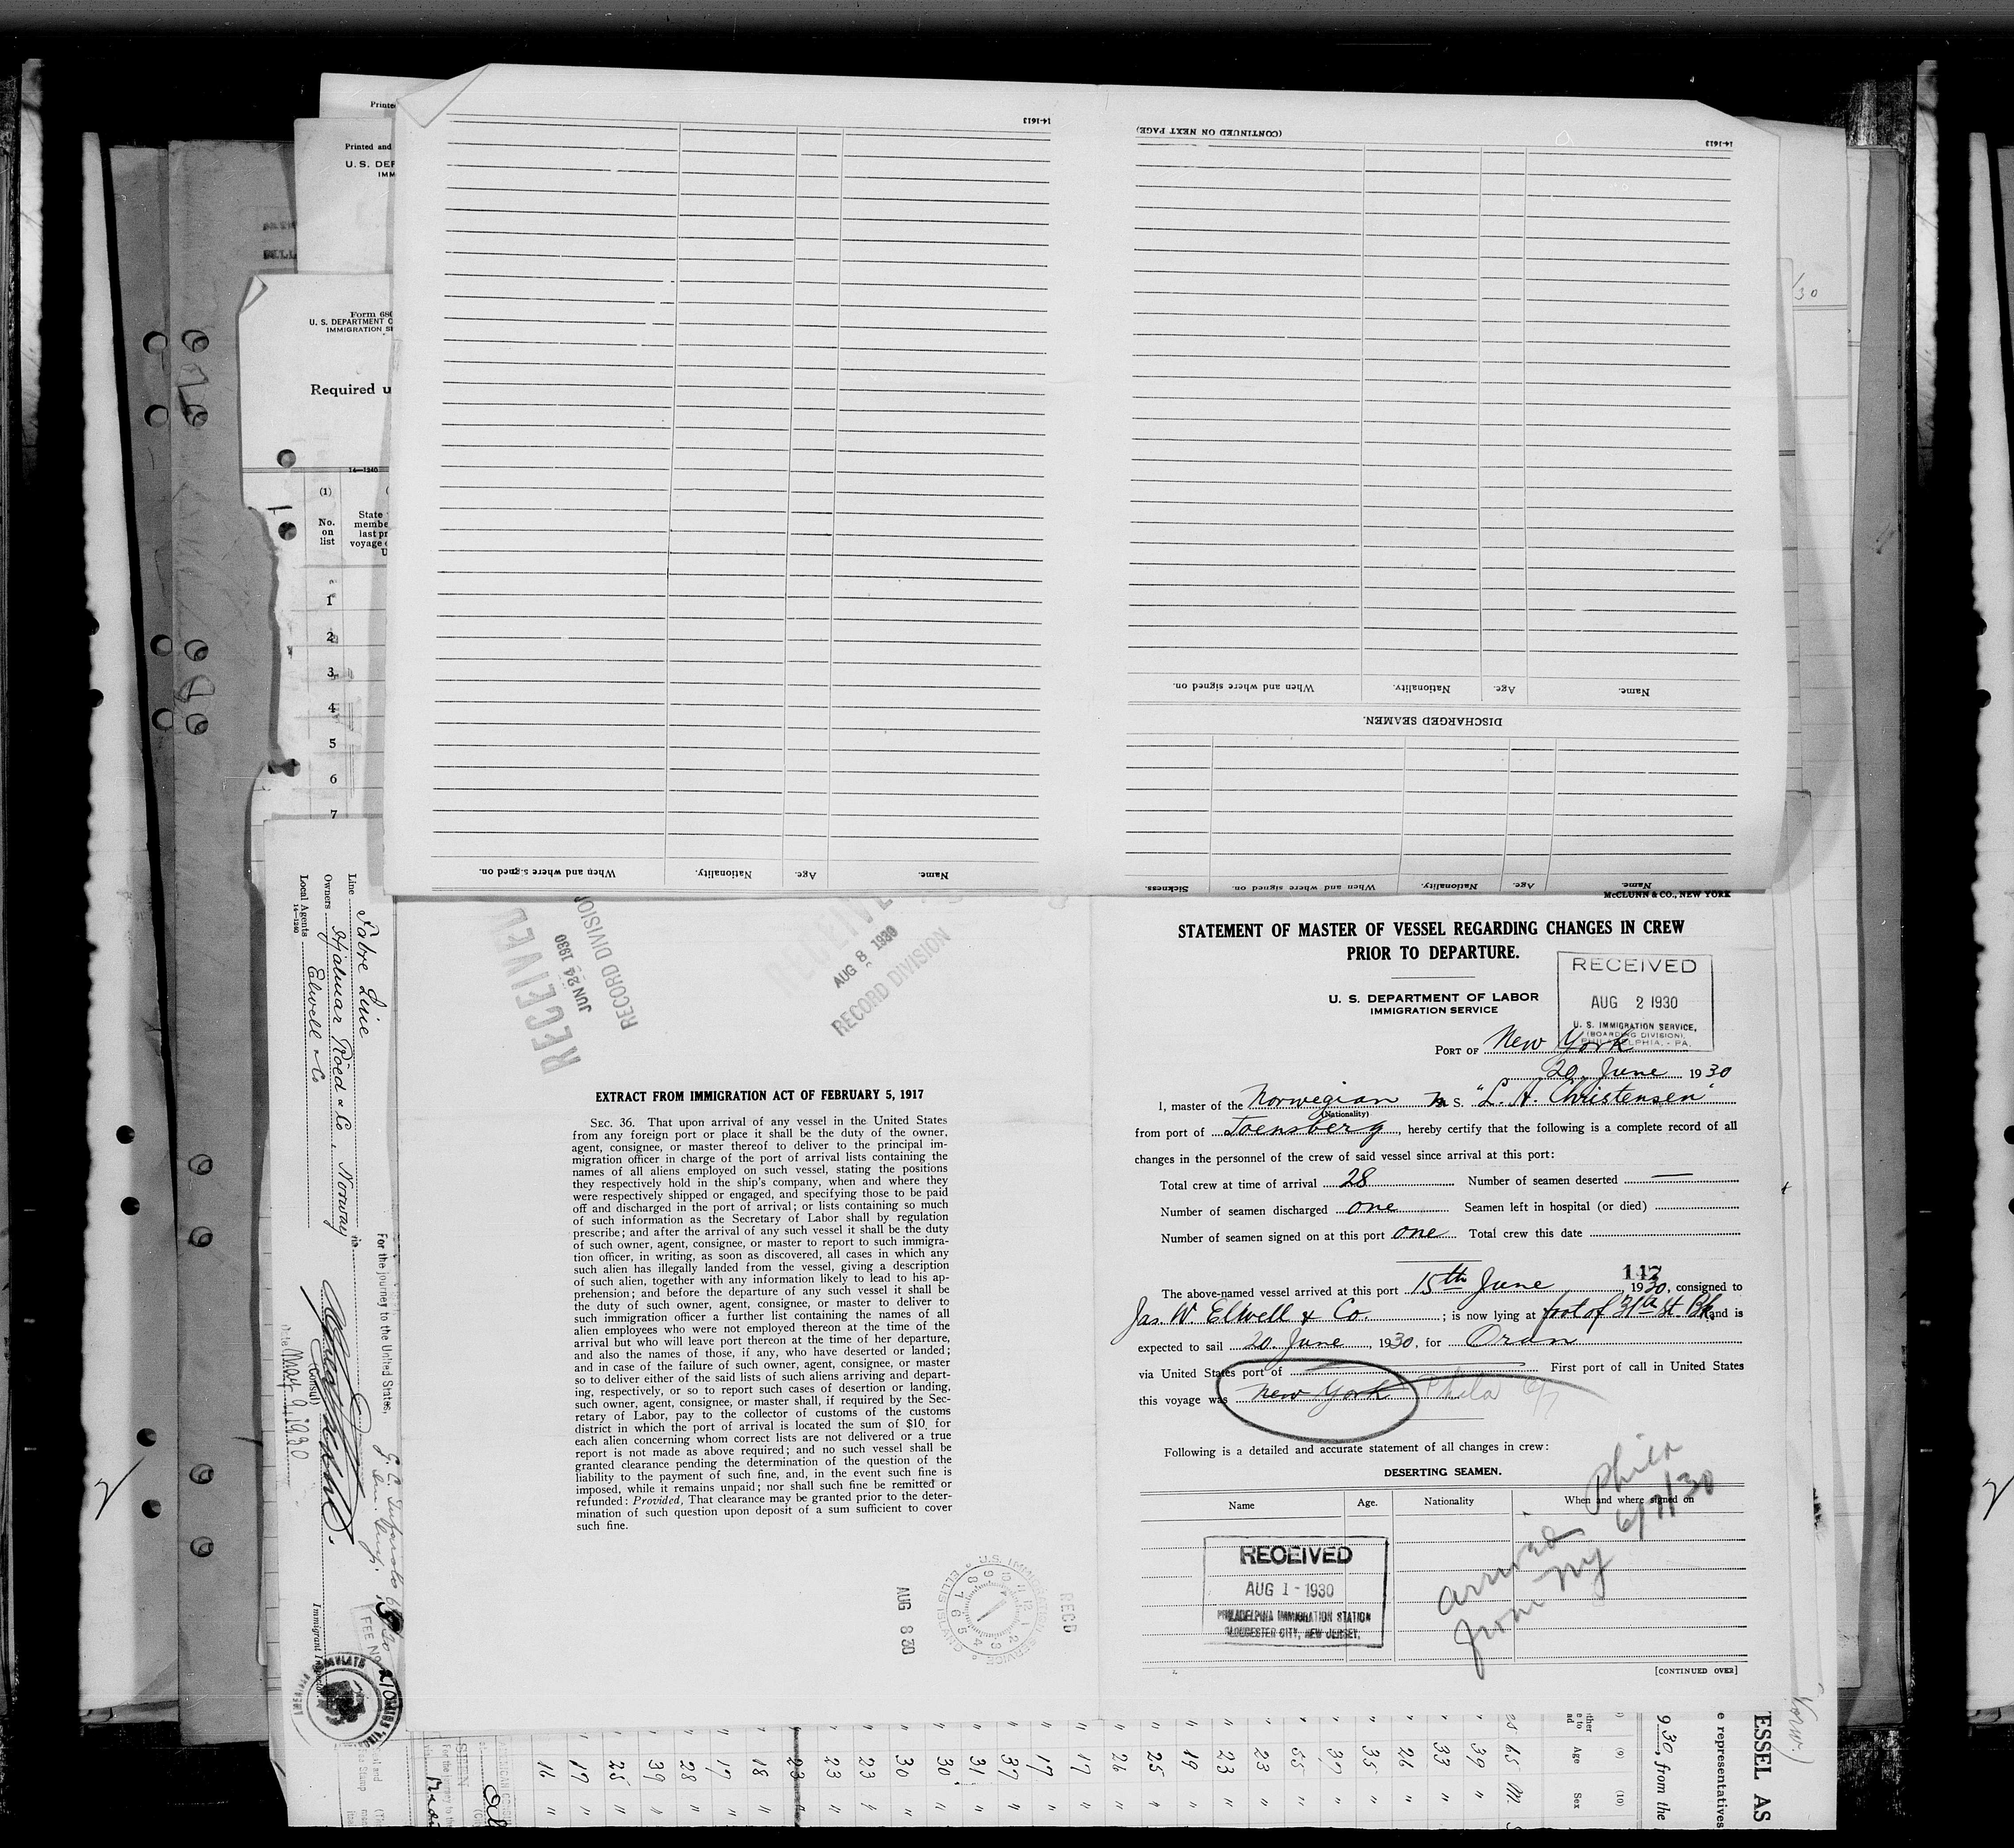 Printed
Printed and
U. S. DEP
IMM
Form 680
U. S. DEPARTMENT O
IMMIGRATION SE
Required u
14—1240
(1)
No.
on
list
State
membe
last pr
voyage
U
1
2
3
4
5
6
7
14-1613
When and where signed on.
Nationality.
Age.
Name.
(CONTINUED ON NEXT PAGE)
14-1613
When and where signed on.
Nationality.
Age.
Name.
DISCHARGED SEAMEN.
Sickness.
When and where signed on.
Nationality.
Age.
Name.
McCLUNN & CO., NEW YORK
Line Fabre Line
Owners Hjalmar Röed & Co., Norway
Local Agents Elwell & Co
14—1240
For the journey to the United States,
(Consul)
Date May 9, 1930
Immigrant Inspector
FEE No.
RECEIVED
JUN 24 1930
RECORD DIVISION
AUG 8 1930
RECORD DIVISION
EXTRACT FROM IMMIGRATION ACT OF FEBRUARY 5, 1917
SEC. 36. That upon arrival of any vessel in the United States
from any foreign port or place it shall be the duty of the owner,
agent, consignee, or master thereof to deliver to the principal im-
migration officer in charge of the port of arrival lists containing the
names of all aliens employed on such vessel, stating the positions
they respectively hold in the ship's company, when and where they
were respectively shipped or engaged, and specifying those to be paid
off and discharged in the port of arrival; or lists containing so much
of such information as the Secretary of Labor shall by regulation
prescribe; and after the arrival of any such vessel it shall be the duty
of such owner, agent, consignee, or master to report to such immigra-
tion officer, in writing, as soon as discovered, all cases in which any
such alien has illegally landed from the vessel, giving a description
of such alien, together with any information likely to lead to his ap-
prehension; and before the departure of any such vessel it shall be
the duty of such owner, agent, consignee, or master to deliver to
such immigration officer a further list containing the names of all
alien employees who were not employed thereon at the time of the
arrival but who will leave port thereon at the time of her departure,
and also the names of those, if any, who have deserted or landed;
and in case of the failure of such owner, agent, consignee, or master
so to deliver either of the said lists of such aliens arriving and depart-
ing, respectively, or so to report such cases of desertion or landing,
such owner, agent, consignee, or master shall, if required by the Sec-
retary of Labor, pay to the collector of customs of the customs
district in which the port of arrival is located the sum of $10 for
each alien concerning whom correct lists are not delivered or a true
report is not made as above required; and no such vessel shall be
granted clearance pending the determination of the question of the
liability to the payment of such fine, and, in the event such fine is
imposed, while it remains unpaid; nor shall such fine be remitted or
refunded: Provided, That clearance may be granted prior to the deter-
mination of such question upon deposit of a sum sufficient to cover
such fine.
AUG 8 30
U.S. IMMIGRATION SERVICE
ELLIS ISLAND
REC'D
STATEMENT OF MASTER OF VESSEL REGARDING CHANGES IN CREW
PRIOR TO DEPARTURE.
U. S. DEPARTMENT OF LABOR
IMMIGRATION SERVICE
RECEIVED
AUG 2 1930
U. S. IMMIGRATION SERVICE,
(BOARDING DIVISION),
PHILADELPHIA, - PA.
PORT OF New York
20. June 1930
I, master of the Norwegian M S. "L. A. Christensen"
(Nationality)
from port of Toensberg, hereby certify that the following is a complete record of all
changes in the personnel of the crew of said vessel since arrival at this port:
Total crew at time of arrival 28 Number of seamen deserted —
Number of seamen discharged one Seamen left in hospital (or died)
Number of seamen signed on at this port one Total crew this date
147
The above-named vessel arrived at this port 15th June 1930, consigned to
Jas. W. Elwell & Co. ; is now lying at foot of 31st St. Bk. and is
expected to sail 20. June, 1930, for Oran
via United States port of First port of call in United States
this voyage was New York Phila 6/7
Following is a detailed and accurate statement of all changes in crew:
DESERTING SEAMEN.
Name Age. Nationality When and where signed on
arrived Phila
from NY 6/7/30
RECEIVED
AUG 1 - 1930
PHILADELPHIA IMMIGRATION STATION
GLOUCESTER CITY, NEW JERSEY.
[CONTINUED OVER]
SEEN
For the journey to the
16
17
25
39
28
17
18
23
23
23
30
30
31
37
17
17
26
25
19
23
23
55
37
35
26
33
39
65 M.
(9)
Age
(10)
Sex
930, from the
e representatives
ESSEL AS